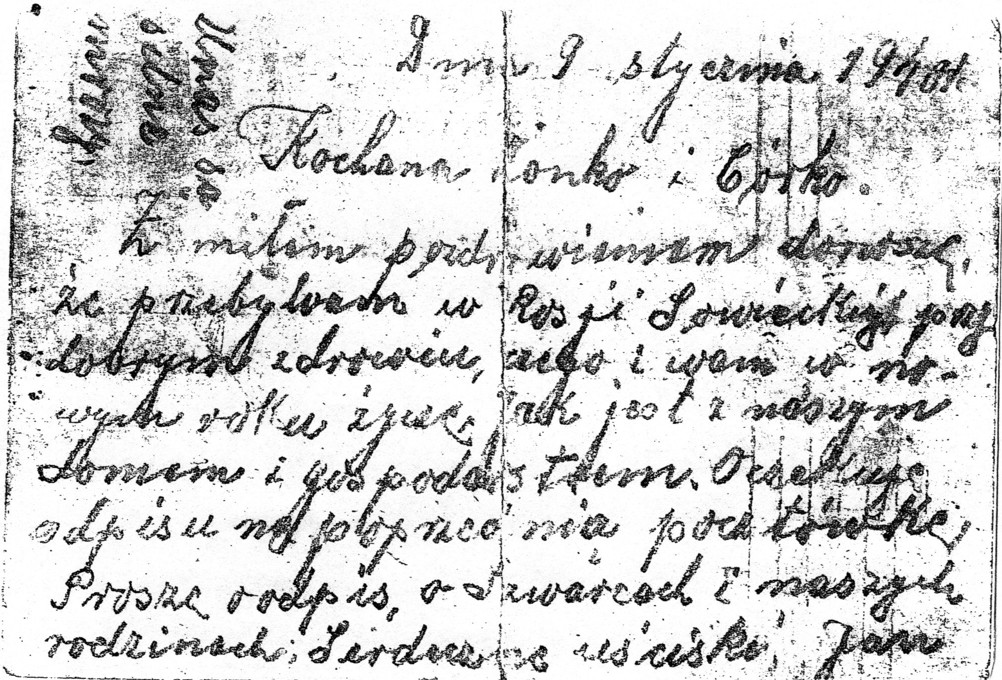 Dnia 9 stycznia 1940r.
Kochana żonko i Córko.
Z miłem pozdrowieniem donoszę,
że przebywam w Rosji Sowieckiej przy
dobrym zdrowiu, czego i wam w no-
wym roku życzę. Jak jest z naszym
domem i gospodarstwem. Oczekuję
odpisu na poprzednią pocztówkę,
Proszę o odpis, o szwargach i naszych
rodzinach, Serdeczne uściski, Jan